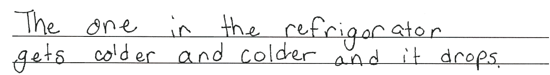 The one in the refrigorator
gets colder and colder and it drops.